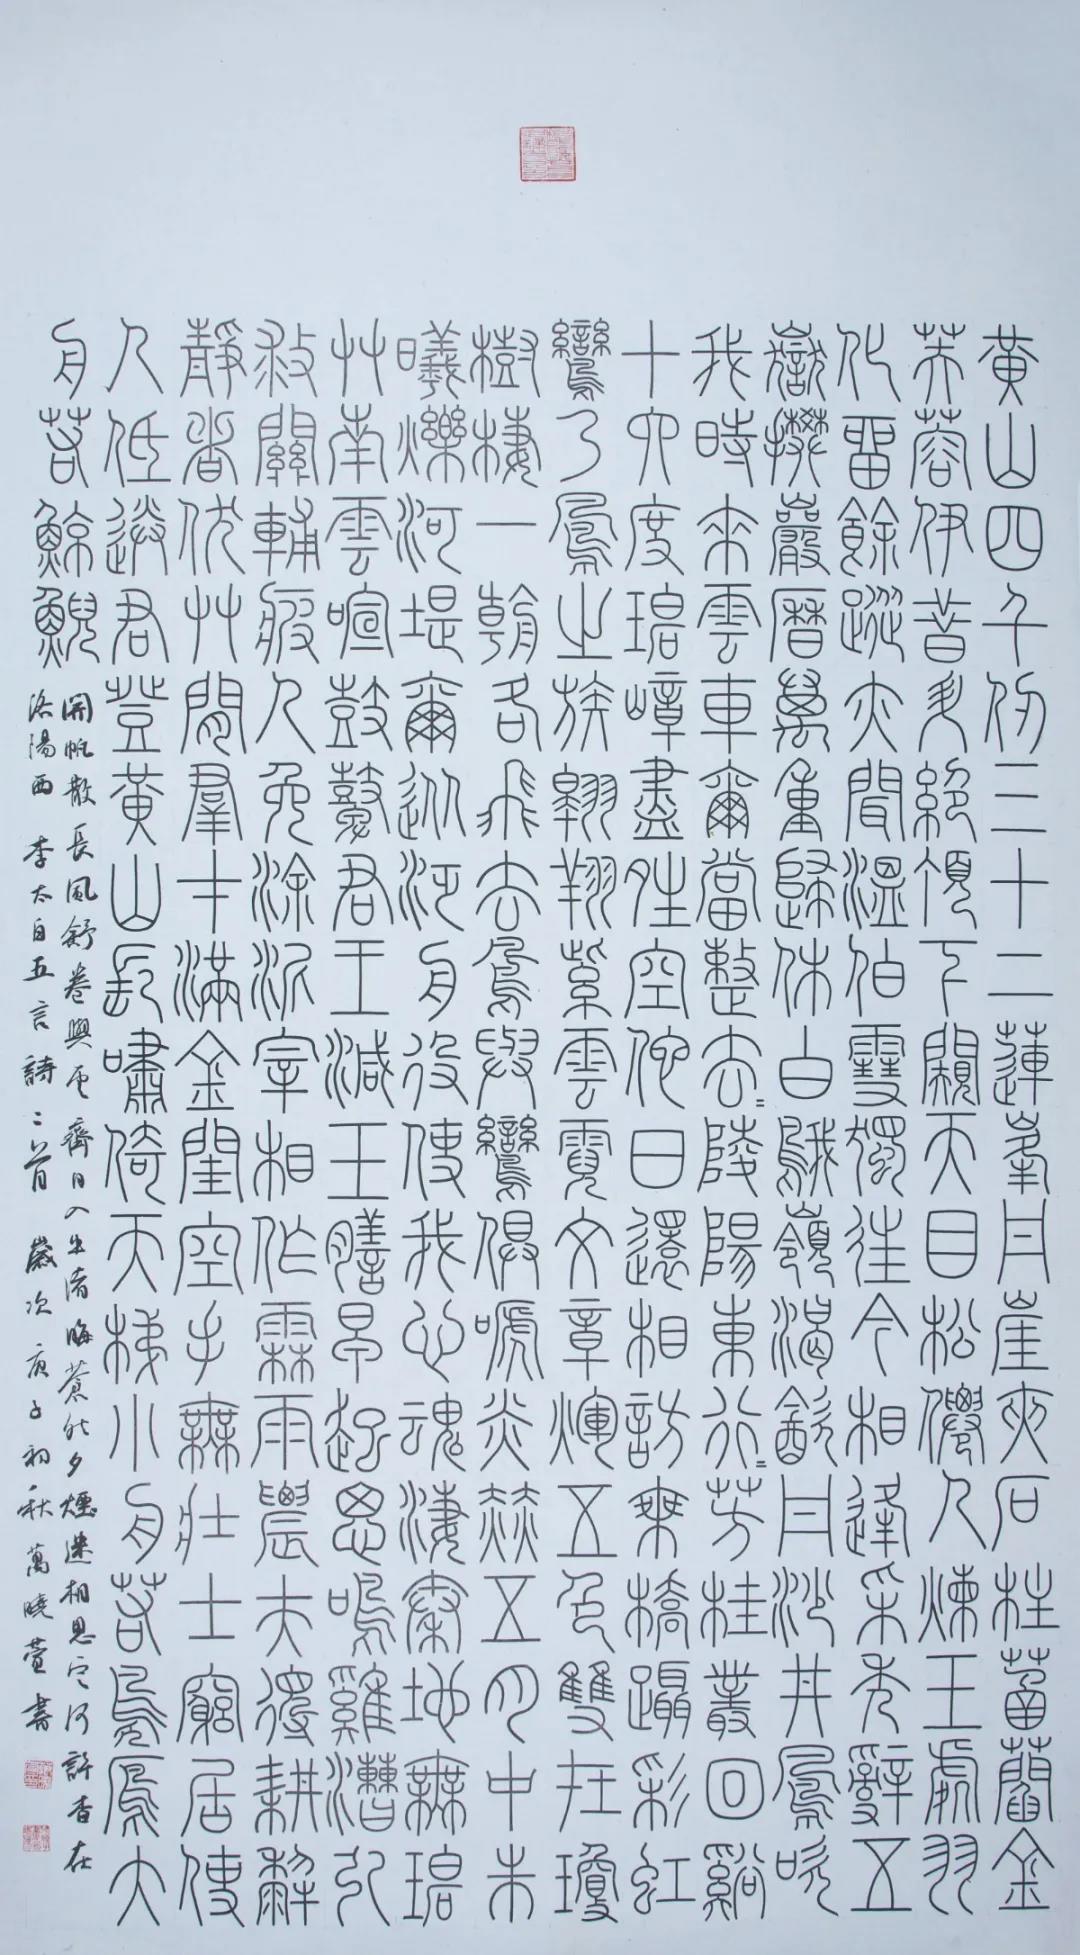 黃山四千仞三十二蓮峯丹崖夾石柱菡萏金
芙蓉伊昔升絕頂下闚天目松僊人煉玉處羽
化留餘蹤亦聞溫伯雪獨往今相逢采秀辭五
嶽攀巖歷萬重歸休白鵝嶺渴飲丹砂井鳳吹
我時來雲車爾當整去=陵陽東行=芳桂叢回谿
十六度碧嶂盡晴空他日還相訪乘橋躡彩虹
鸞乃鳳之族翱翔紫雲霓文章輝五色雙在瓊
樹棲一朝各飛去鳳與鸞俱嗁炎赫五月中朱
曦爍河堤爾從汎舟役使我心魂淒秦地無碧
艸南雲喧鼓鼙君王減玉膳早起思鳴雞漕引
救關輔疲人免塗泥宰相作霖雨農夫得耕犁
靜者伏艸間羣才滿金閨空手無壯士窮居使
人低送君登黃山長嘯倚天梯小舟若鳧鴈大
舟若鯨鯢
開帆散長風舒卷與雲齊日入牛渚晦蒼然夕煙迷相思定何許杳在
洛陽西 李太白五言詩二首 歲次庚子初秋 萬曉萱書